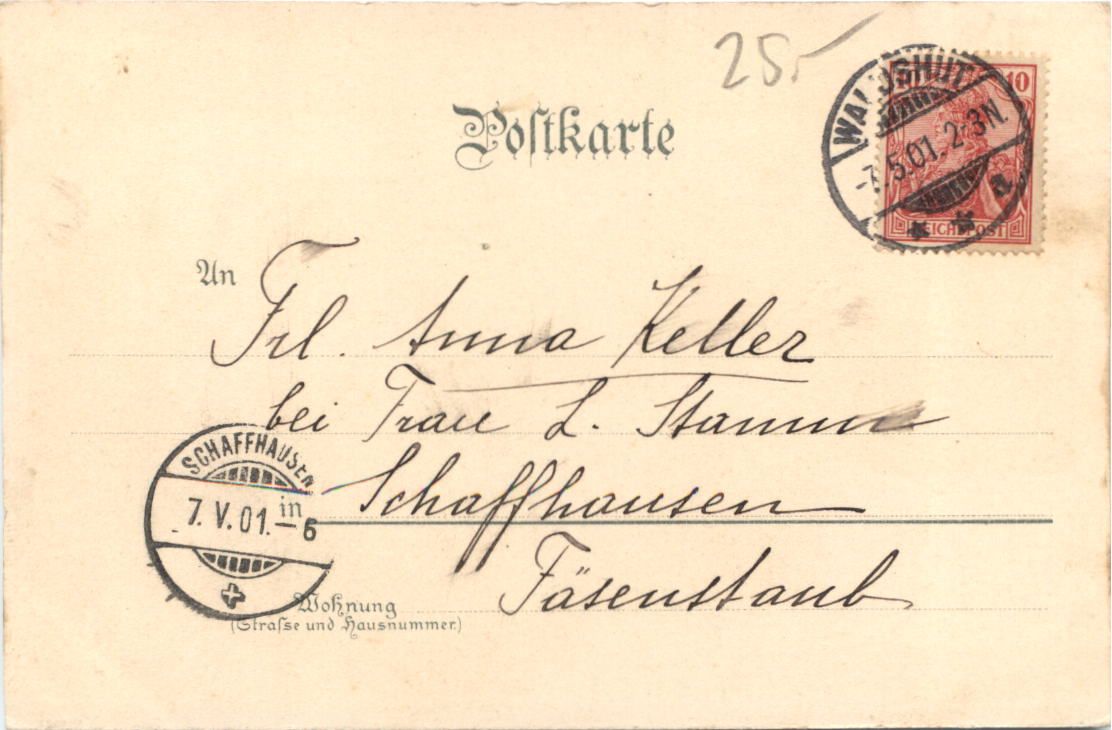 25.-
Postkarte
WALDSHUT
-7.5.01. 2-3N.
a
10
REICHSPOST
An
Frl. Anna Keller
bei Frau L. Stamm
Schaffhausen
Fäsenstaub
SCHAFFHAUSEN
7. V. 01. - 6
in
Wohnung
(Strasse und Hausnummer.)